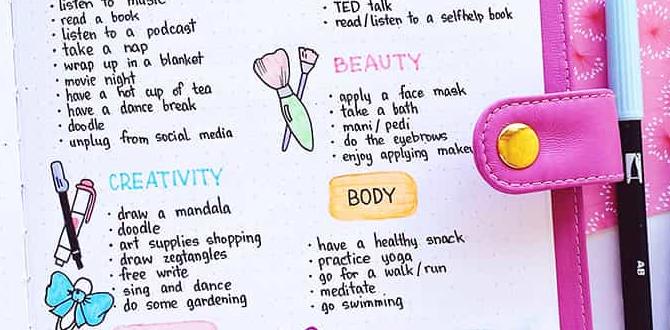 listen to music
read a book
listen to a podcast
take a nap
wrap up in a blanket
movie night
have a hot cup of tea
have a dance break
doodle
unplug from social media
TED talk
read/listen to a selfhelp book
BEAUTY
apply a face mask
take a bath
mani/pedi
do the eyebrows
enjoy applying
CREATIVITY
draw a mandala
doodle
art supplies shopping
draw zegtangles
free write
sing and dance
do some gardening
BODY
have a healthy snack
practice yoga
go for a walk/run
meditate
go swimming
AB